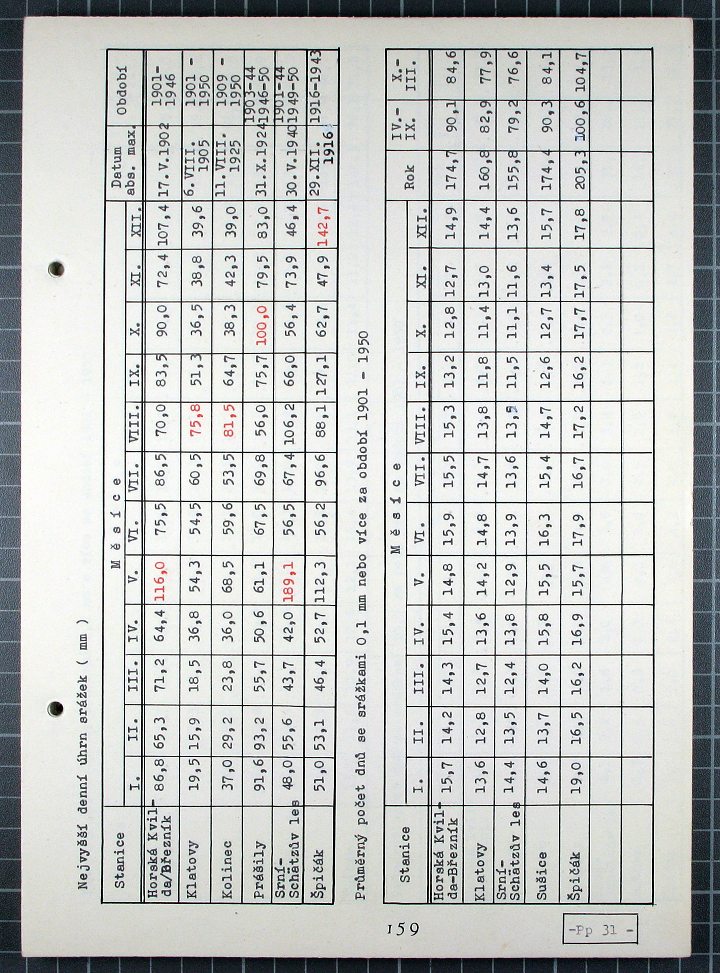 Nejvyšší denní úhrn srážek ( mm )
Stanice M ě s í c e Datum abs. max. Období
I. II. III. IV. V. VI. VII. VIII. IX. X. XI. XII.
Horská Kvil-
da/Březník 86,8 65,3 71,2 64,4 116,0 75,5 86,5 70,0 83,5 90,0 72,4 107,4 17.V.1902 1901-1946
Klatovy 19,5 15,9 18,5 36,8 54,3 54,5 60,5 75,8 51,3 36,5 38,8 39,6 6.VIII.1905 1901-1950
Kolinec 37,0 29,2 23,8 36,0 68,5 59,6 53,5 81,5 64,7 38,3 42,3 39,0 11.VIII.1925 1909-1950
Prášily 91,6 93,2 55,7 50,6 61,1 67,5 69,8 56,0 75,7 100,0 79,5 83,0 31.X.1924 1903-44 1946-50
Srní-
Schätzův les 48,0 55,6 43,7 42,0 189,1 56,5 67,4 106,2 66,0 56,4 73,9 46,4 30.V.1940 1901-44 1949-50
Špičák 51,0 53,1 46,4 52,7 112,3 56,2 96,6 88,1 127,1 62,7 47,9 142,7 29.XII.1916 1916-1943
Průměrný počet dnů se srážkami 0,1 mm nebo více za období 1901 - 1950
Stanice M ě s í c e Rok IV.-IX. X.-III.
I. II. III. IV. V. VI. VII. VIII. IX. X. XI. XII.
Horská Kvil-
da-Březník 15,7 14,2 14,3 15,4 14,8 15,9 15,5 15,3 13,2 12,8 12,7 14,9 174,7 90,1 84,6
Klatovy 13,6 12,8 12,7 13,6 14,2 14,8 14,7 13,8 11,8 11,4 13,0 14,4 160,8 82,9 77,9
Srní-
Schätzův les 14,4 13,5 12,4 13,8 12,9 13,9 13,6 13,5 11,5 11,1 11,6 13,6 155,8 79,2 76,6
Sušice 14,6 13,7 14,0 15,8 15,5 16,3 15,4 14,7 12,6 12,7 13,4 15,7 174,4 90,3 84,1
Špičák 19,0 16,5 16,2 16,9 15,7 17,9 16,7 17,2 16,2 17,7 17,5 17,8 205,3 100,6 104,7
159
-Pp 31 -